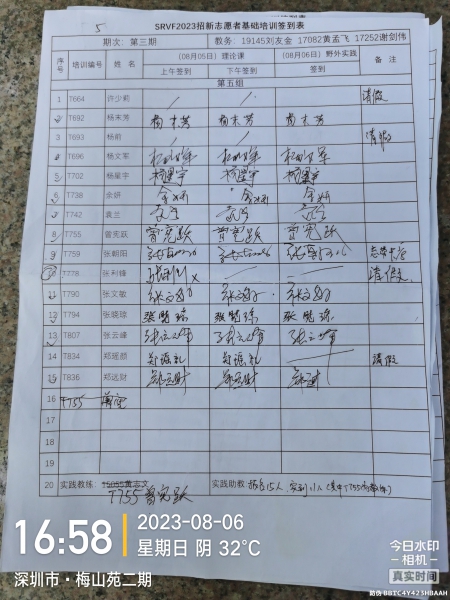 5
SRVF2023招新志愿者基础培训签到表
期次：第三期 教务：19145刘友金 17082黄孟飞 17252谢剑伟
序号 培训编号 姓名 (08月05日) 理论课 (08月06日) 野外实践 备注
上午签到 下午签到 签到
第五组
1 T664 许少莉 / / 请假
2 T692 杨末芳 杨末芳 杨末芳 杨末芳
3 T693 杨前 / 请假
4 T696 杨文军 杨文军 杨文军 杨文军
5 T702 杨星宇 杨星宇 杨星宇 杨星宇
6 T738 余妍 余妍 余妍 余妍
7 T742 袁兰 袁兰 袁兰 袁兰
8 T755 曾宪跃 曾宪跃 曾宪跃 曾宪跃
9 T759 张朝阳
10 T778 张利锋 x — — 请假
11 T790 张文敏 张文敏 张文敏 张文敏
12 T794 张晓琼 张晓琼 张晓琼 张晓琼
13 T807 张云峰 张云峰 张云峰 张云峰
14 T834 郑瑶颜 — 请假
15 T836 郑远财 郑远财 郑远财 郑远财
16 T755
17
18
19
20 实践教练：15055黄志文 实践助教：
T755 曾宪跃
16:58 2023-08-06
星期日 阴 32℃
深圳市·梅山苑二期
今日水印
相机
真实时间
防伪 BBTC4Y423HBAAH